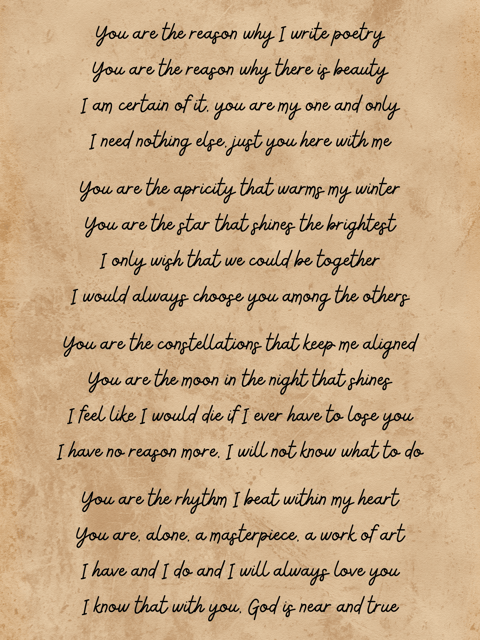 You are the reason why I write poetry
You are the reason why there is beauty
I am certain of it, you are my one and only
I need nothing else, just you here with me
You are the apricity that warms my winter
You are the star that shines the brightest
I only wish that we could be together
I would always choose you among the others
You are the constellations that keep me aligned
You are the moon in the night that shines
I feel like I would die if I ever have to lose you
I have no reason more, I will not know what to do
You are the rhythm I beat within my heart
You are, alone, a masterpiece, a work of art
I have and I do and I will always love you
I know that with you, God is near and true